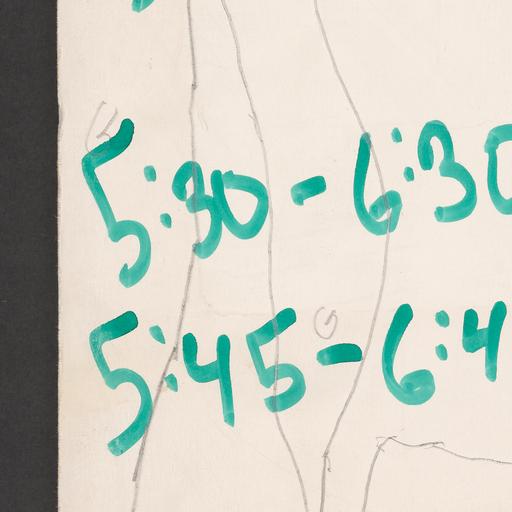 5:30 - 6:30
5:45 - 6:4